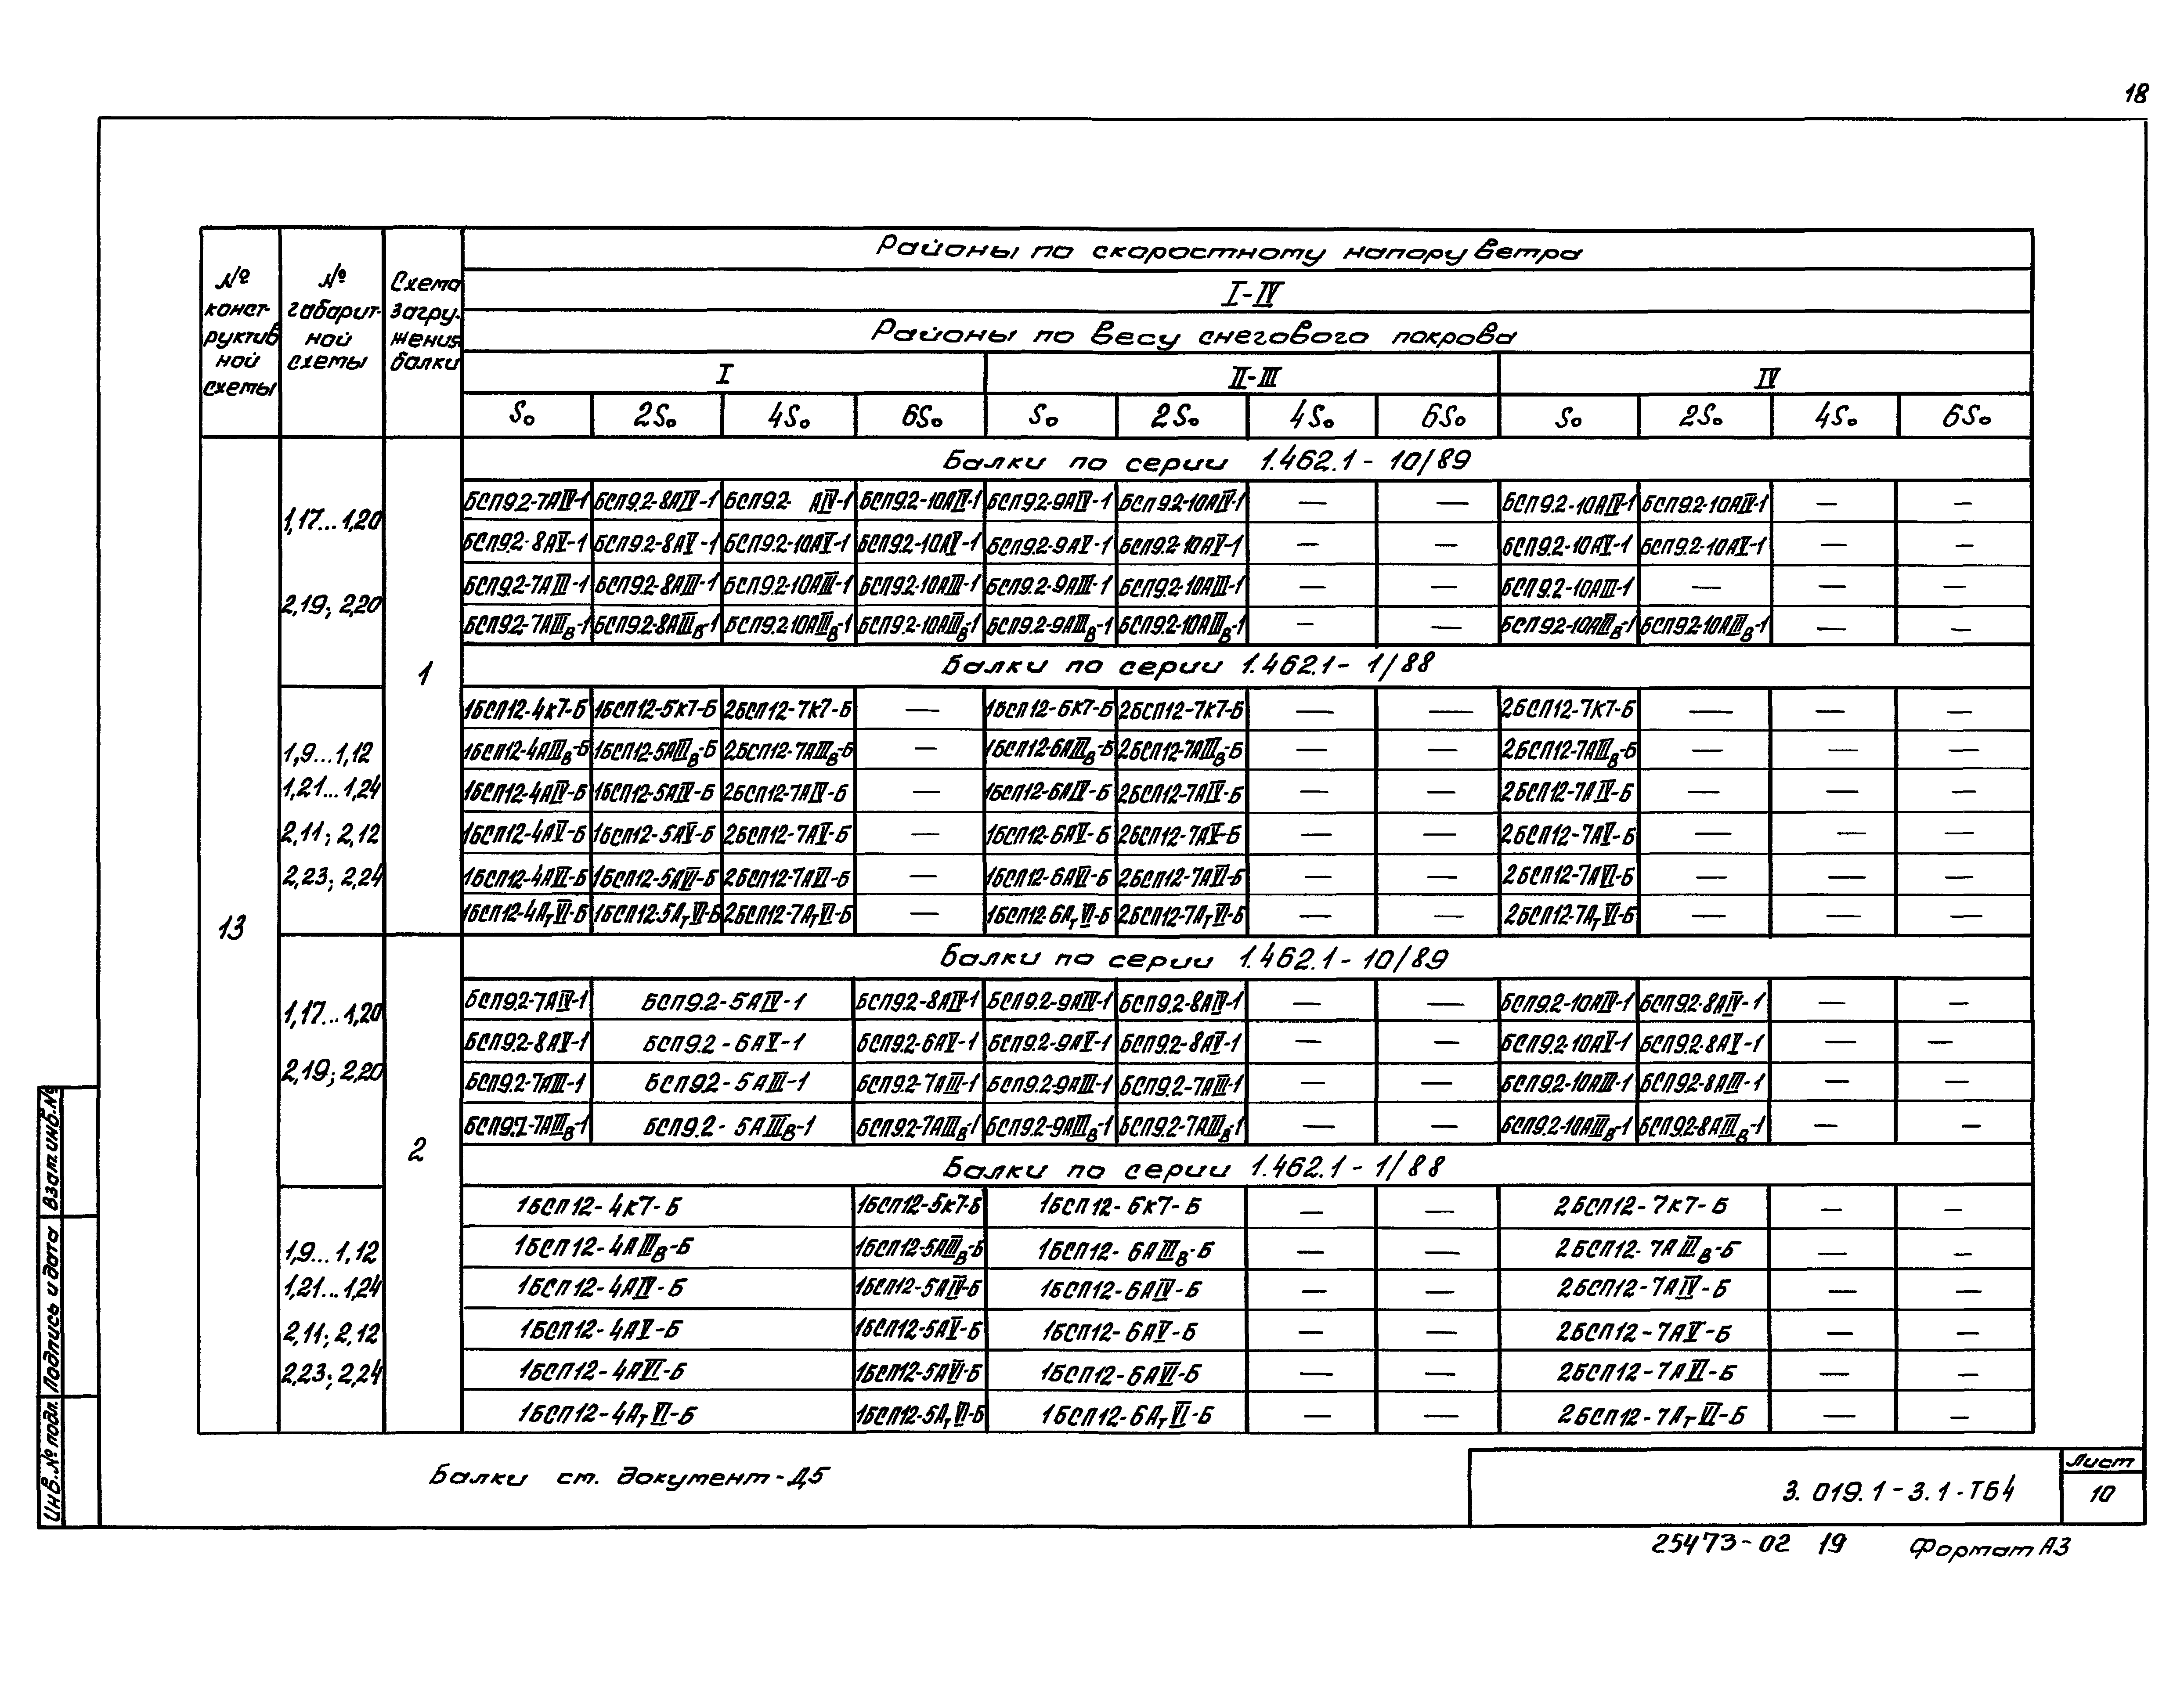 18
№ конст- руктив ной схемы
№ габарит- ной схемы
Схема загру- жения балки
Районы по скоростному напору ветра
I-IV
Районы по весу снегового покрова
I II-III IV
S₀ 2S₀ 4S₀ 6S₀ S₀ 2S₀ 4S₀ 6S₀ S₀ 2S₀ 4S₀ 6S₀
13
1
Балки по серии 1.462.1-10/89
1,17...1,20
2,19; 2,20
БСП9.2-7АIV-1 БСП9.2-8АIV-1 БСП9.2- АIV-1 БСП9.2-10АIV-1 БСП9.2-9АIV-1 БСП9.2-10АIV-1 — — БСП9.2-10АIV-1 БСП9.2-10АIV-1 — —
БСП9.2-8АV-1 БСП9.2-8АV-1 БСП9.2-10АV-1 БСП9.2-10АV-1 БСП9.2-9АV-1 БСП9.2-10АV-1 — — БСП9.2-10АV-1 БСП9.2-10АV-1 — —
БСП9.2-7АIII-1 БСП9.2-8АIII-1 БСП9.2-10АIII-1 БСП9.2-10АIII-1 БСП9.2-9АIII-1 БСП9.2-10АIII-1 — — БСП9.2-10АIII-1 — — —
БСП9.2-7АIIIв-1 БСП9.2-8АIIIв-1 БСП9.2 10АIIIв-1 БСП9.2-10АIIIв-1 БСП9.2-9АIIIв-1 БСП9.2-10АIIIв-1 — — БСП9.2-10АIIIв-1 БСП9.2-10АIIIв-1 — —
Балки по серии 1.462.1-1/88
1,9...1,12
1,21...1,24
2,11; 2,12
2,23; 2,24
1БСП12-4К7-Б 1БСП12-5К7-Б 2БСП12-7К7-Б — 1БСП12-6К7-Б 2БСП12-7К7-Б — — 2БСП12-7К7-Б — — —
1БСП12-4АIIIв-Б 1БСП12-5АIIIв-Б 2БСП12-7АIIIв-Б — 1БСП12-6АIIIв-Б 2БСП12-7АIIIв-Б — — 2БСП12-7АIIIв-Б — — —
1БСП12-4АIV-Б 1БСП12-5АIV-Б 2БСП12-7АIV-Б — 1БСП12-6АIV-Б 2БСП12-7АIV-Б — — 2БСП12-7АIV-Б — — —
1БСП12-4АV-Б 1БСП12-5АV-Б 2БСП12-7АV-Б — 1БСП12-6АV-Б 2БСП12-7АV-Б — — 2БСП12-7АV-Б — — —
1БСП12-4АVI-Б 1БСП12-5АVI-Б 2БСП12-7АVI-Б — 1БСП12-6АVI-Б 2БСП12-7АVI-Б — — 2БСП12-7АVI-Б — — —
1БСП12-4АтVI-Б 1БСП12-5АтVI-Б 2БСП12-7АтVI-Б — 1БСП12-6АтVI-Б 2БСП12-7АтVI-Б — — 2БСП12-7АтVI-Б — — —
2
Балки по серии 1.462.1-10/89
1,17...1,20
2,19; 2,20
БСП9.2-7АIV-1 БСП9.2-5АIV-1 БСП9.2-8АIV-1 БСП9.2-9АIV-1 БСП9.2-8АIV-1 — — БСП9.2-10АIV-1 БСП9.2-8АIV-1 — —
БСП9.2-8АV-1 БСП9.2-6АV-1 БСП9.2-6АV-1 БСП9.2-9АV-1 БСП9.2-8АV-1 — — БСП9.2-10АV-1 БСП9.2-8АV-1 — —
БСП9.2-7АIII-1 БСП9.2-5АIII-1 БСП9.2-7АIII-1 БСП9.2-9АIII-1 БСП9.2-7АIII-1 — — БСП9.2-10АIII-1 БСП9.2-8АIII-1 — —
БСП9.2-7АIIIв-1 БСП9.2-5АIIIв-1 БСП9.2-7АIIIв-1 БСП9.2-9АIIIв-1 БСП9.2-7АIIIв-1 — — БСП9.2-10АIIIв-1 БСП9.2-8АIIIв-1 — —
Балки по серии 1.462.1-1/88
1,9...1,12
1,21...1,24
2,11; 2,12
2,23; 2,24
1БСП12-4К7-Б 1БСП12-5К7-Б 1БСП12-6К7-Б — — 2БСП12-7К7-Б — —
1БСП12-4АIIIв-Б 1БСП12-5АIIIв-Б 1БСП12-6АIIIв-Б — — 2БСП12-7АIIIв-Б — —
1БСП12-4АIV-Б 1БСП12-5АIV-Б 1БСП12-6АIV-Б — — 2БСП12-7АIV-Б — —
1БСП12-4АV-Б 1БСП12-5АV-Б 1БСП12-6АV-Б — — 2БСП12-7АV-Б — —
1БСП12-4АVI-Б 1БСП12-5АVI-Б 1БСП12-6АVI-Б — — 2БСП12-7АVI-Б — —
1БСП12-4АтVI-Б 1БСП12-5АтVI-Б 1БСП12-6АтVI-Б — — 2БСП12-7АтVI-Б — —
Балки см. документ-Д5
3.019.1-3.1-ТБ4
Лист
10
25473-02 19 Формат А3
Инв.№ подл. Подпись и дата Взам.инв.№